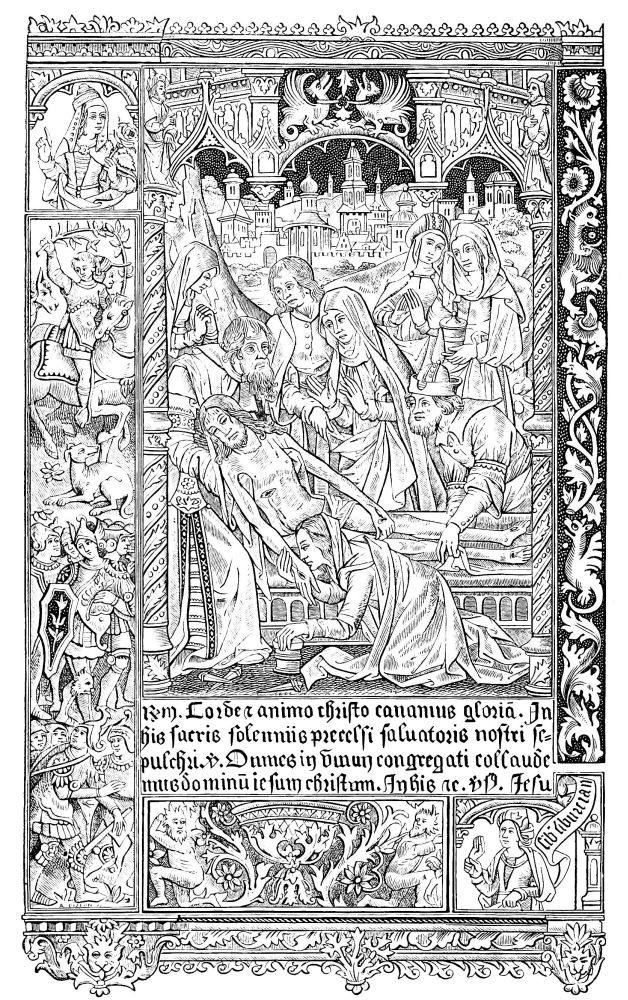 Corde ⁊ animo christo canamus gloriā. In
his sacris solenniis precelsi saluatoris nostri se-
pulchri. ℣. Omnes in vnum congregati collaude
mus dominū iesum christum. In his ⁊c. Jesu